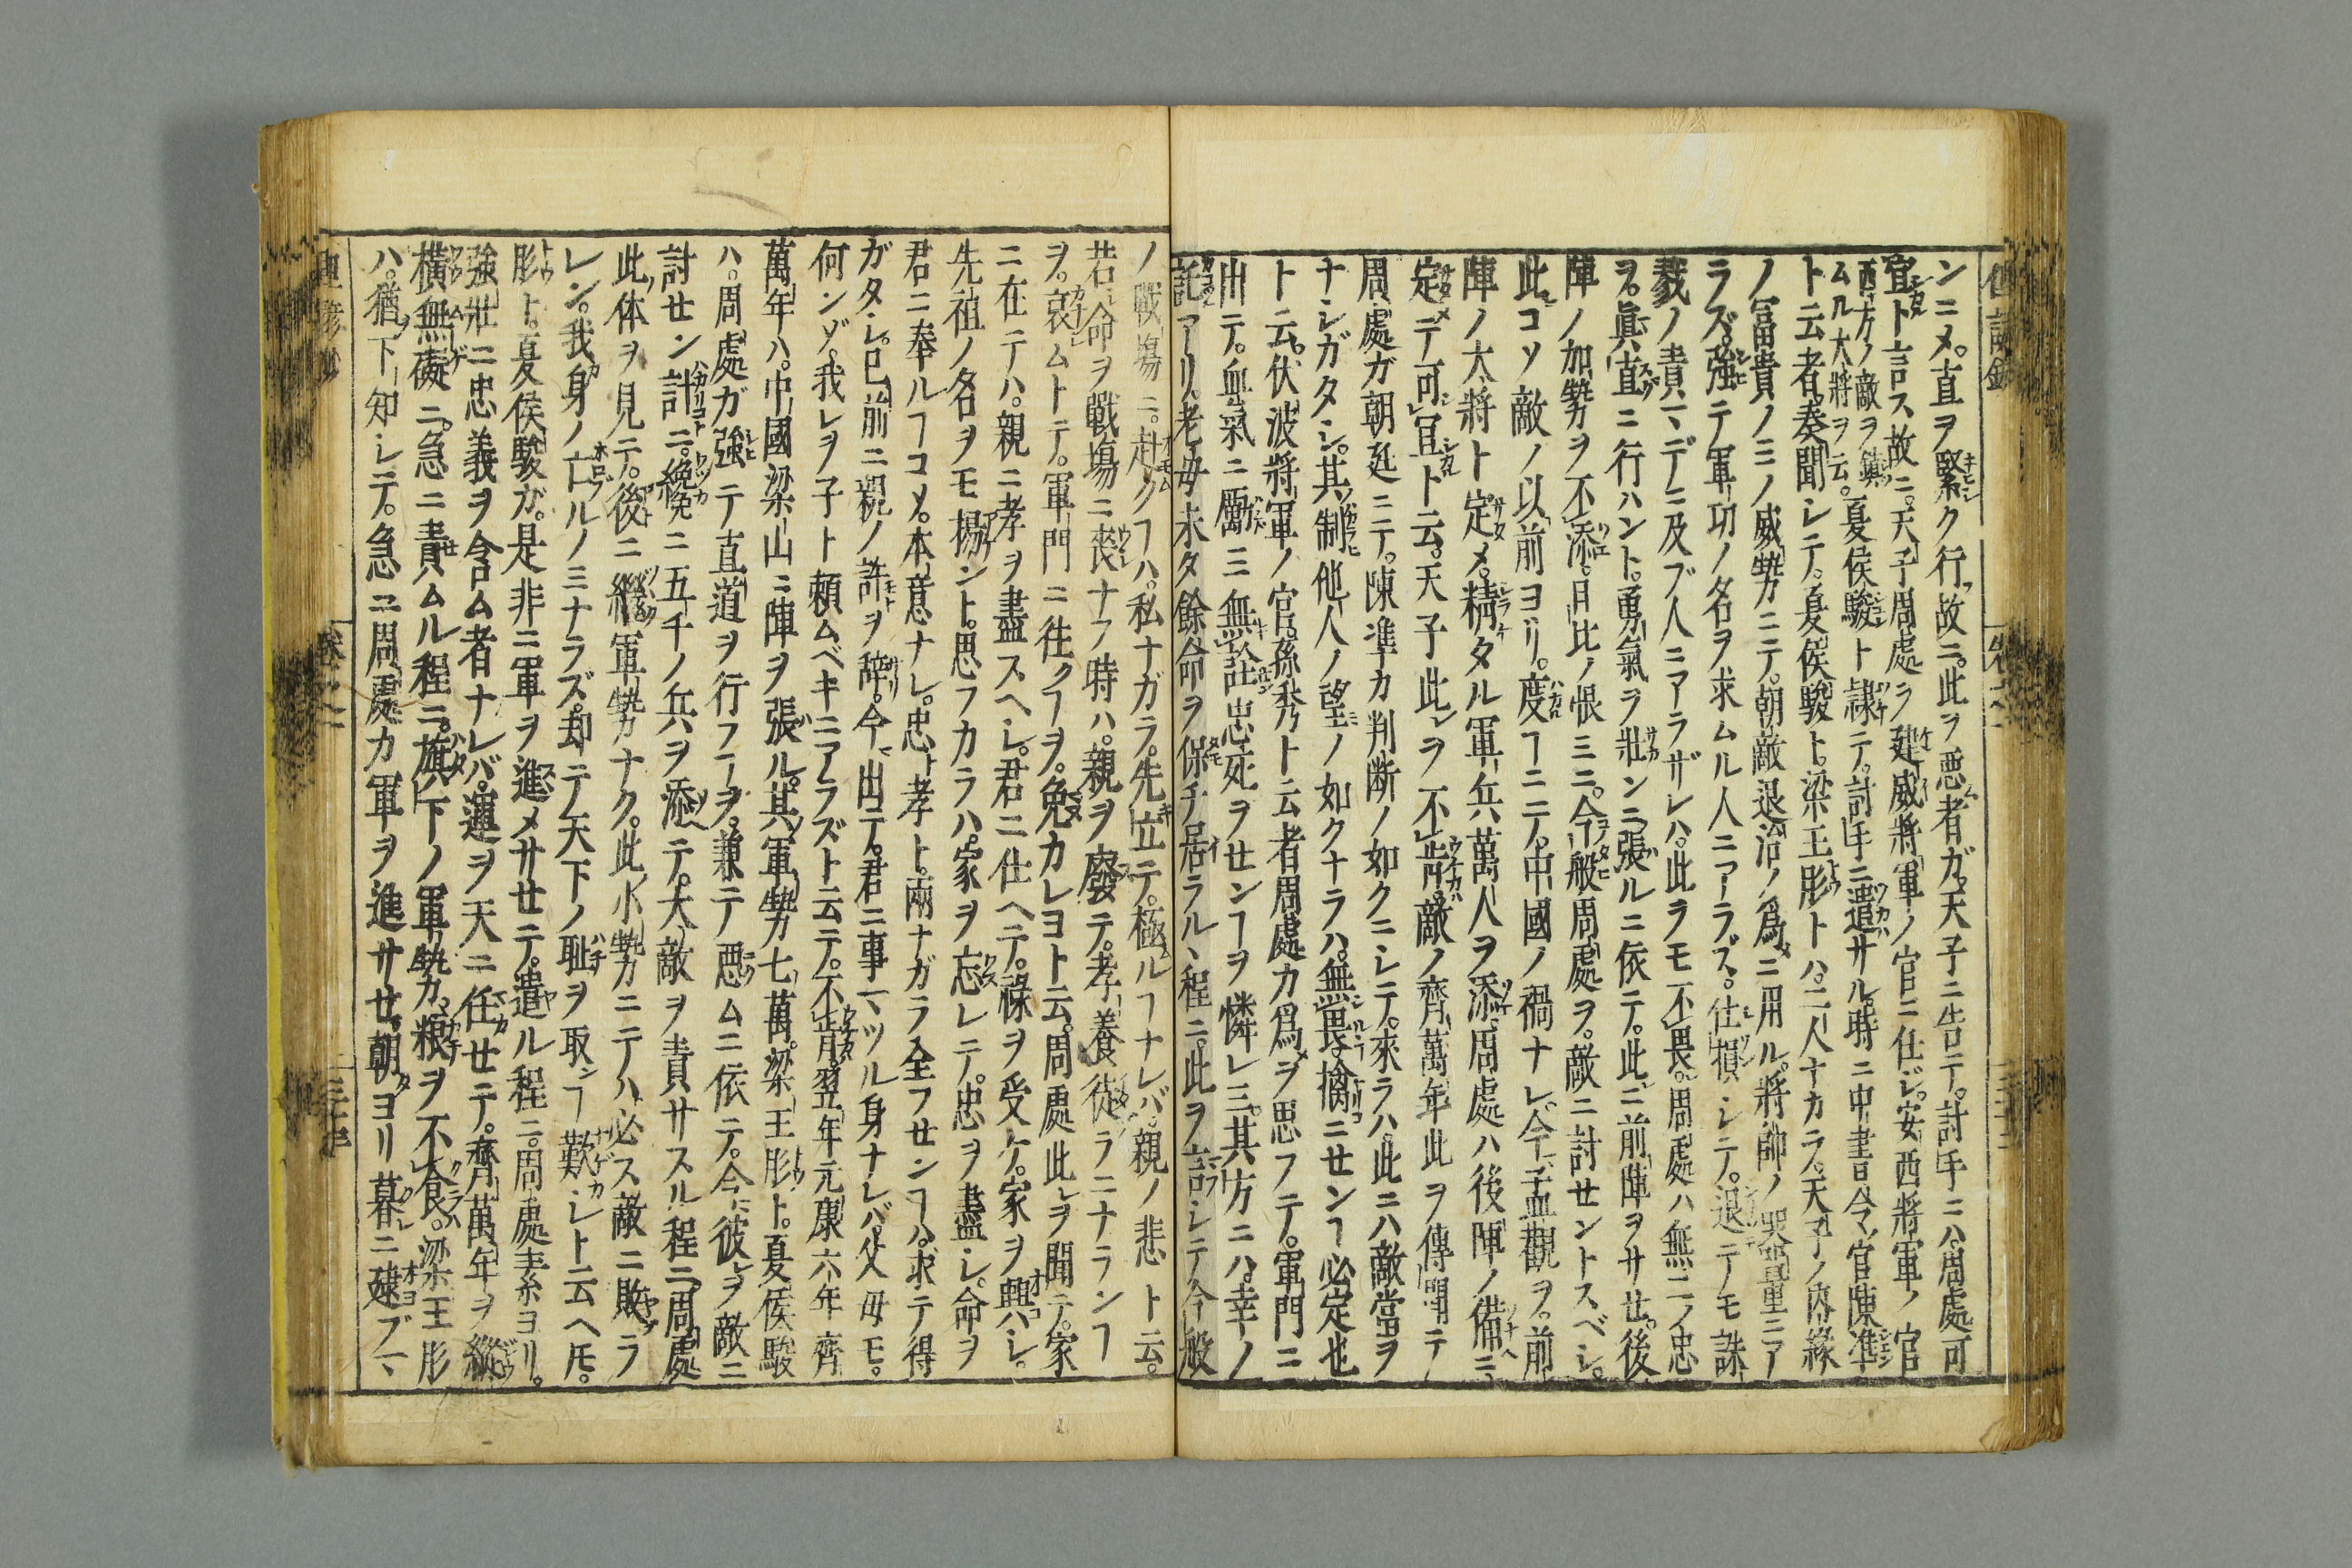 ンニメ。直ヲ緊ク行フ故ニ。此ヲ悪ム者ガ。天子ニ告テ。討手ニハ周處可
宜ト言ス故ニ。天子周處ヲ建威將軍ノ官ニ仕ジ。安西將軍ノ官
西方ノ敵ヲ鎮
ムル大將ヲ云。夏侯駿ト隷テ。討手ニ遣サル。時ニ中書令ノ官陳準
ト云者。奏聞シテ。夏侯駿ト。梁王肜トハ。二人ナカラ。天子ノ内縁
ノ冨貴ノミノ威勢ニテ。朝敵退治ノ爲ニ用ル。將帥ノ器量ニア
ラズ。強テ軍功ノ名ヲ求ムル人ニアラズ。仕損シテ。退テモ誅
戮ノ責マデニ及ブ人ニアラザレハ。此ヲモ不畏。周處ハ無二ノ忠
ヲ。眞直ニ行ハント。勇氣ヲ壯ンニ張ルニ依テ。此ニ前陣ヲサせ。後
陣ノ加勢ヲ不添。日比ノ恨ミニ。今般周處ヲ。敵ニ討せントスベシ。
此コソ敵ノ以前ヨリ。度ヿニテ。中國ノ禍ナレ。今孟觀ヲ。前
陣ノ大將ト定メ。精タル軍兵萬人ヲ添。周處ハ後陣ノ備ニ
定メテ可宜ト云。天子此ヲ不肯。敵ノ齊萬年此ヲ傳聞テ
周處ガ朝廷ニテ。陳準カ判断ノ如クニシテ。來ラハ。此ニハ敵當ヲ
ナシガタシ。其制他人ノ望ノ如クナラハ。無畏擒ニせンヿ必定也
ト云。伏波將軍ノ官。孫秀ト云者周處カ爲ヲ思フテ。軍門ニ
出テ。血氣ニ勵ミ無詮忠死ヲせンヿヲ憐レミ。其方ニハ。幸ノ
託アリ。老母未タ餘命ヲ保チ居ラル丶程ニ。此ヲ言シテ今般
ノ戰塲ニ。赴クヿハ。私ナガラ。先立テ。極ルヿナレバ。親ノ悲ト云。
若命ヲ戰塲ニ喪ナフ時ハ。親ヲ廢テ。孝養徒ラニナランヿ
ヲ。哀ムトテ。軍門ニ往クヿヲ。免カレヨト云。周處此ヲ聞テ。家
ニ在テハ。親ニ孝ヲ盡スヘシ。君ニ仕ヘテ。祿ヲ受ケ。家ヲ興ハシ。
先祖ノ名ヲモ揚ント。思フカラハ。家ヲ忘レテ。忠ヲ盡シ。命ヲ
君ニ奉ルヿコソ。本意ナレ。忠ト孝ト。兩ナガラ全フせンヿハ。求テ得
ガタシ。已前ニ親ノ許ヲ辞。今出テ。君ニ事マツル身ナレバ。父母モ。
何ンゾ。我レヲ子ト頼ムベキニアラズト云テ。不肯。翌年元康六年齊
萬年ハ。中國梁山ニ陣ヲ張ル。其軍勢七萬。梁王肜ト。夏侯駿
ハ。周處ガ強テ直道ヲ行フヿヲ。兼テ悪ムニ依テ。今彼ヲ敵ニ
討せン計ニ。纔ニ五千ノ兵ヲ添テ。大敵ヲ責サスル程ニ。周處
此体ヲ見テ。後ニ繼軍勢ナク。此小勢ニテハ。必ス敵ニ敗ラ
レン。我身ノ亡ルノミナラズ。却テ天下ノ耻ヲ取ンヿ歎シト云ヘ𪜈。
肜ト。夏侯駿ガ。是非ニ軍ヲ進メサせテ。遣ル程ニ。周處素ヨリ。
強壯ニ忠義ヲ含ム者ナレバ。運ヲ天ニ任せテ。齊萬年ヲ縱
橫無礙ニ。急ニ責ムル程ニ。旗下ノ軍勢カ。粮ヲ不食。梁王肜
ハ。猶下知シテ。急ニ周處カ軍ヲ進サせ。朝ヨリ暮ニ逮ブマ丶